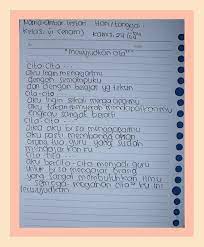 Hari/tanggal:
Kelas: VI (enam) Kamis, 24
"mewujudkan cita"
cita-cita...
aku ingin menggapaimu
dengan semampuku
dan dengan belajar yg tekun
cita-cita...
aku ingin sekali menggapaimu
aku akan mendapatkanmu
engkau sangat berarti
cita-cita...
jika aku bisa menggapaimu
aku pasti membanggakan
orang tua, guru yang sudah
mengajarkan ku
cita-cita...
aku bercita-cita menjadi guru
untuk bisa mengajar orang
yang sangat membutuhkan ilmu
semoga cita" ku ini
terwujudkan